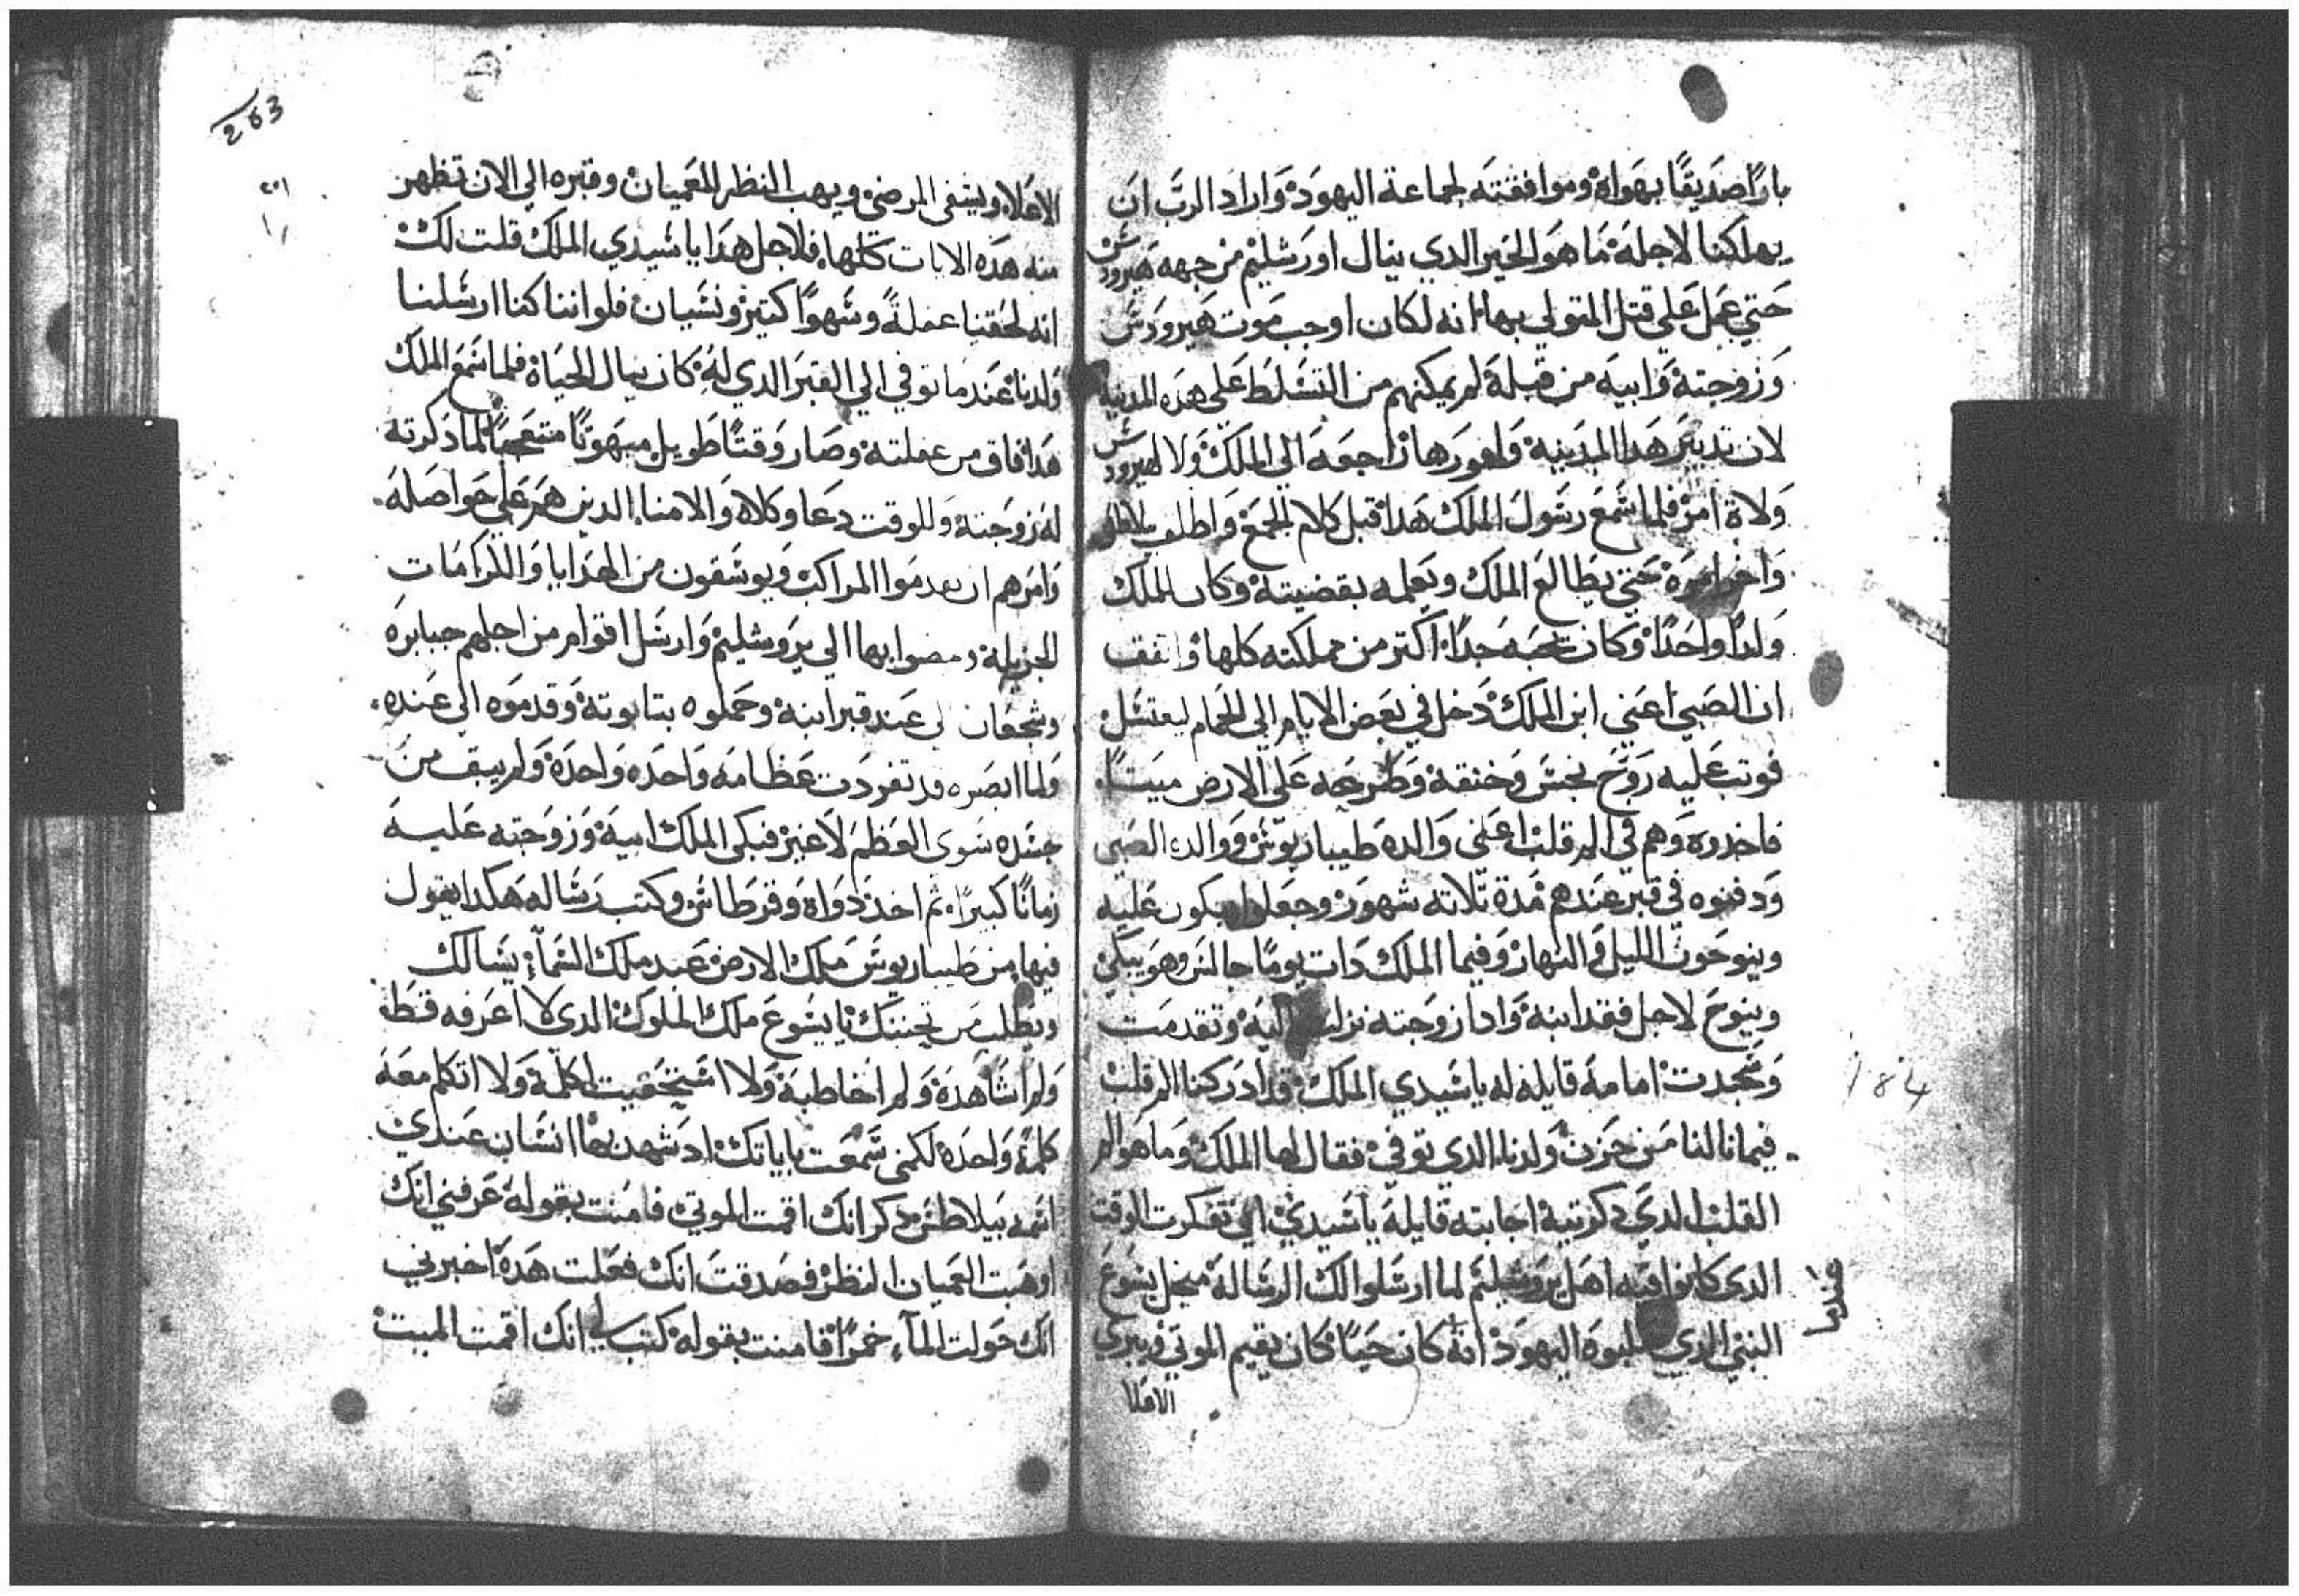 بارًا صديقًا بهواه وموافقته لجماعة اليهود واراد الرب ان
يهلكنا لاجله ما هو الخير الدي ينال اورشليم من جهه هيرودس
حتي عمل علي قتل المتولي بها انه لكان اوجب موت هيرودس
وزوجته وابيه من قبله لم يمكنهم من التسلط علي هده المدينه
لان تدبير هدا المدينه وامورها راجعه الي الملك ولا لهيرودس
ولاة امر فلما سمع رسول الملك هدا قبل كلام الجمع واطلب
حتي يطالع الملك ويعلمه بقضيته وكان للملك
ولدًا واحدًا وكان يحبه جدًا اكتر من مملكته كلها واتفق
ان الصبي اعني ابن الملك دخل في بعض الايام الي الحمام ليغتسل
فوتب عليه روح نجس وخنقه وطرحه علي الارض ميتًا
فاخدوه وهم في الم قلب اعني والده طيباريوس ووالدة الصبي
ودفنوه في قبر عندهم مدة تلاته شهور وجعلوا يبكون عليه
وينوحون الليل والنهار وفيما الملك دات يومًا جالس وهو يبكي
وينوح لاجل فقد ابنه وادا زوجته نزلت اليه وتقدمت
وسجدت امامه قايله له ياسيدي الملك قد ادركنا الم قلب
فيما نالنا من حزن ولدنا الدي توفي فقال لها الملك وما هو الم
القلب الدي دكرتيه اجابته قايله ياسيدي اني تفكرت الوقت
الدي كانوا فيه اهل يروشليم لما ارسلوا لك الرساله منجل يسوع
النبي الدي صلبوه اليهود انه كان حيًا كان يقيم الموتي ويبري
الاعلا
184
263
٢٠١
الاعلاء ويشفي المرضي ويهب النظر للعميان وقبره الي الان تظهر
منه هده الايات كلها فلاجل هدا ياسيدي الملك قلت لك
انه لحقنا غفلةً وسهوًا كتير ونسيان فلو اننا كنا ارسلنا
ولدنا عندما توفي الي القبر الدي له كان ينال الحياه فلما سمع الملك
هدا فاق من غفلته وصار وقتًا طويل مبهوتًا متعجبًا لما دكرته
له زوجته وللوقت دعا وكلاه والامناء الدين هم علي حواصله
وامرهم ان يقدموا المراكب ويوسقون من الهدايا والكرامات
الجزيله ومضوا بهما الي يروشليم وارسل اقوام من اجلهم جبابره
وشجعان الي عند قبر ابنه وحملوه بتابوته وقدموه الي عنده
ولما ابصره قد تفردت عظامه واحده واحده ولم يبق من
جسده سوي العظم لا غير فبكي الملك ابيه وزوجته عليه
زمانًا كبيرًا ثم اخد دواه وقرطاس وكتب رساله هكدا يقول
فيها من طيباريوس ملك الارض عبد ملك السماء يسالك
ويطلب من تحننك يا يسوع ملك الملوك الدي لا اعرفه قط
ولم اشاهده ولم اخاطبه ولا استحقيت اكلمه ولا اتكلم معه
كلمة واحده لكني سمعت باياتك اد شهد بها انسان عندي
اسمه بيلاطس دكر انك اقمت الموتي فامنت بقوله عرفني انك
اوهبت العميان النظر فصدقت انك فعلت هده اخبرني
انك حولت الماء خمرًا فامنت بقوله كتب لي انك اقمت الميت